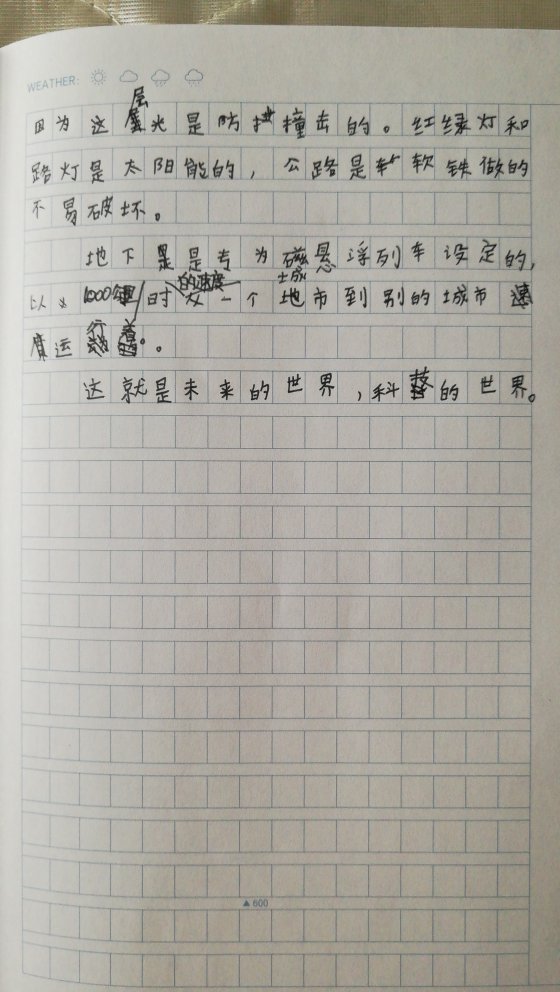 WEATHER:
因为这层光是防撞击的。红绿灯和
路灯是太阳能的，公路是软铁做的
不易破坏。
地下是是专为磁悬浮列车设定的，
以1000公里/时的速度从一个城市到别的城市
运行着。
这就是未来的世界，科技的世界。
▲600